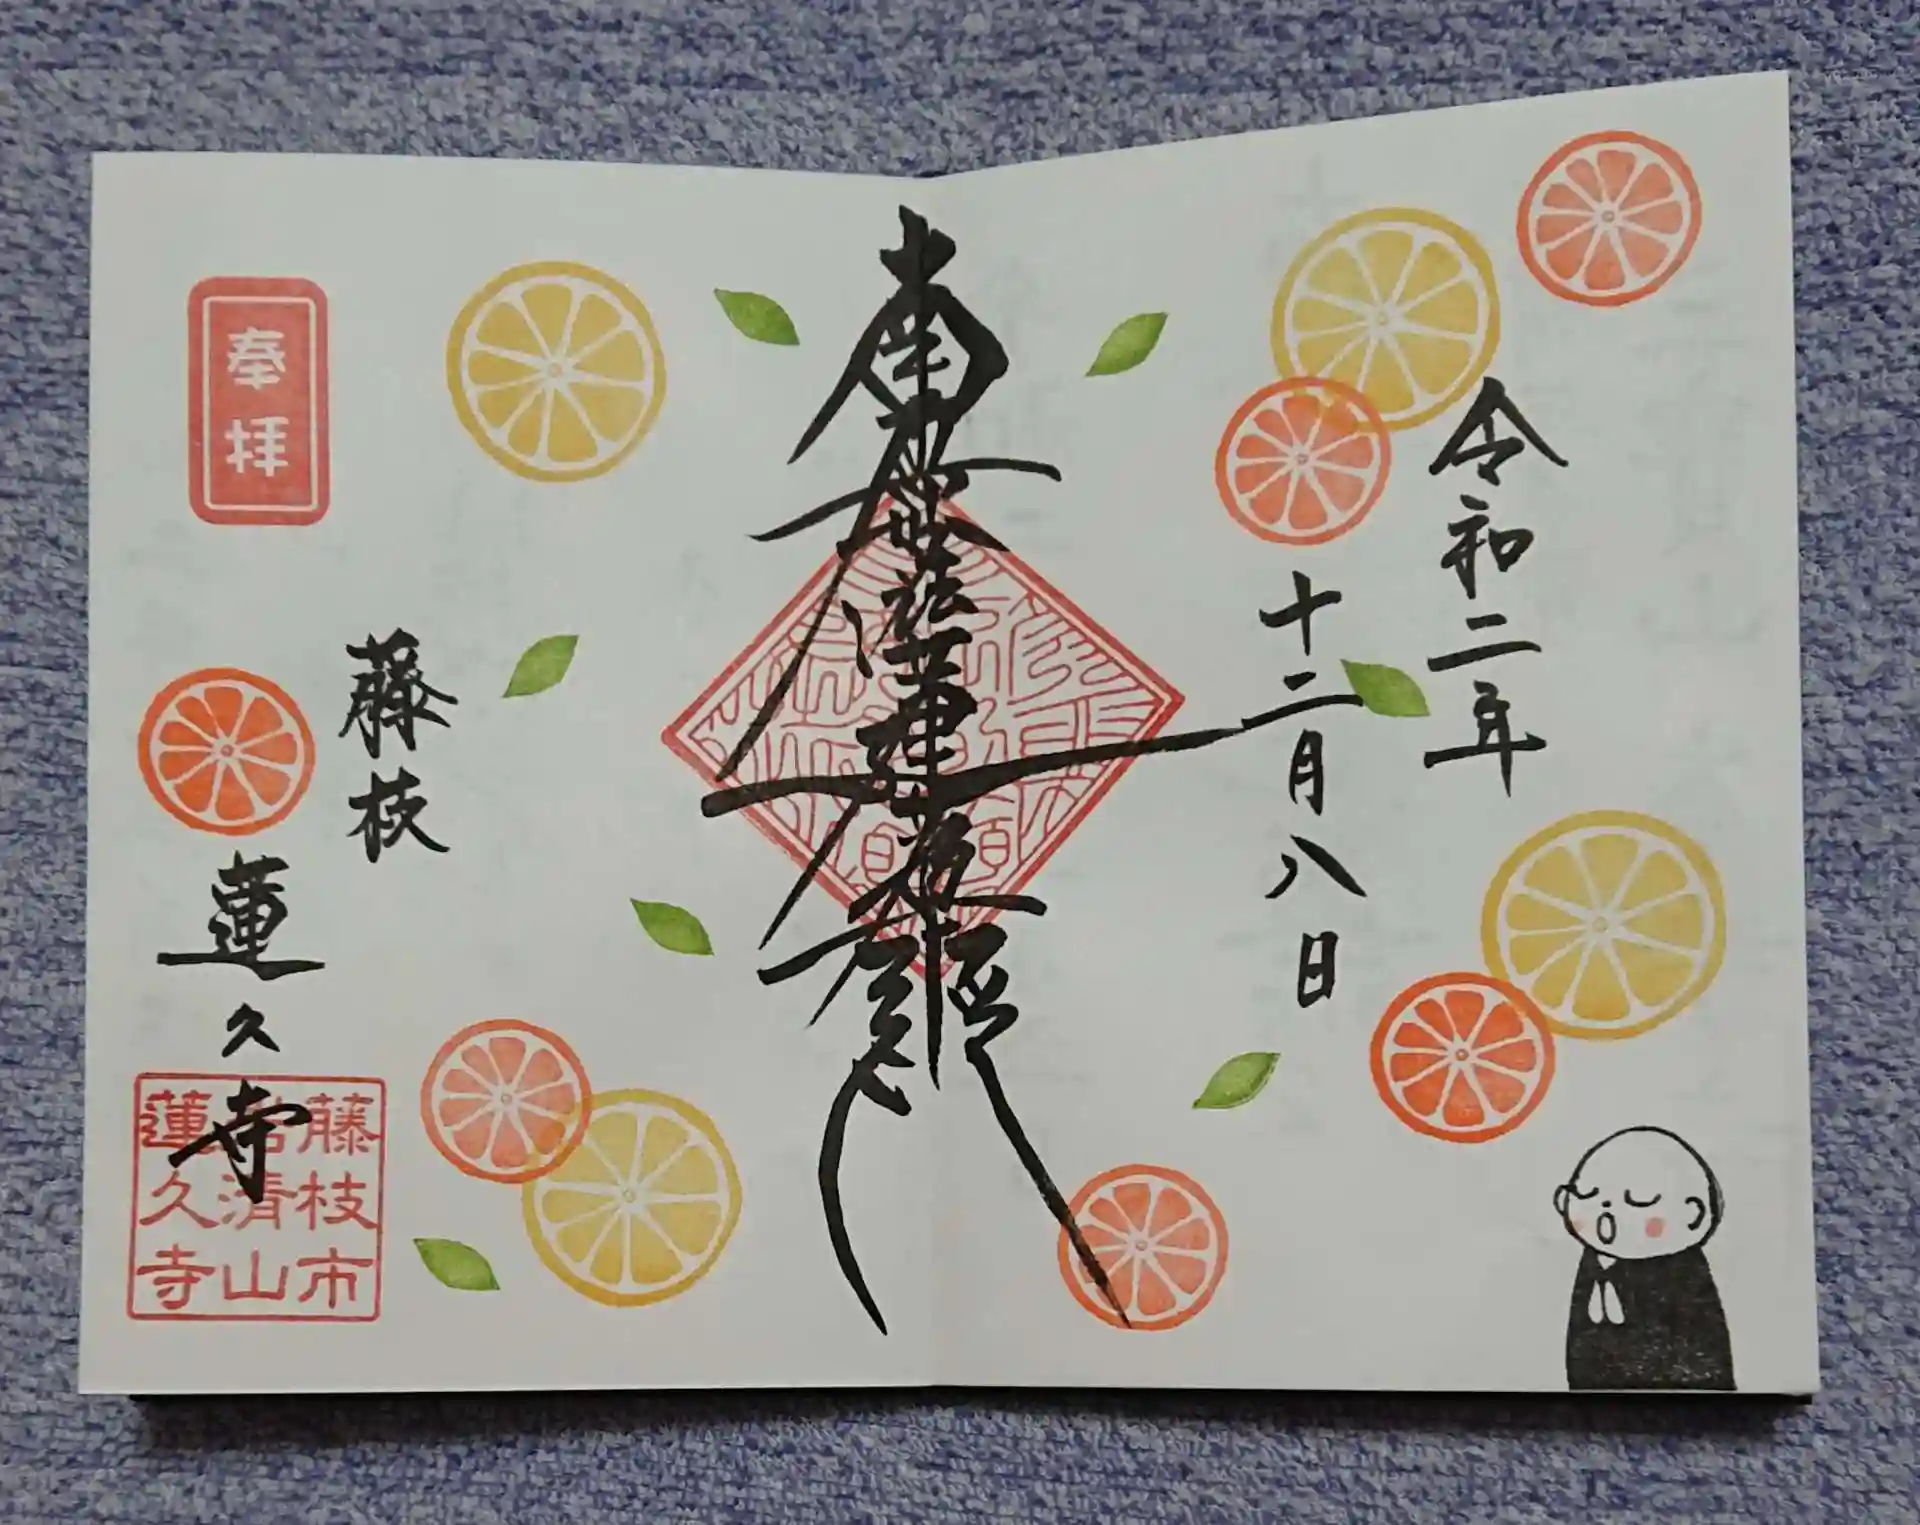 令和二年
十二月八日
南無妙法蓮華経
奉拝
藤枝
蓮久寺
藤枝市
清山
蓮久寺